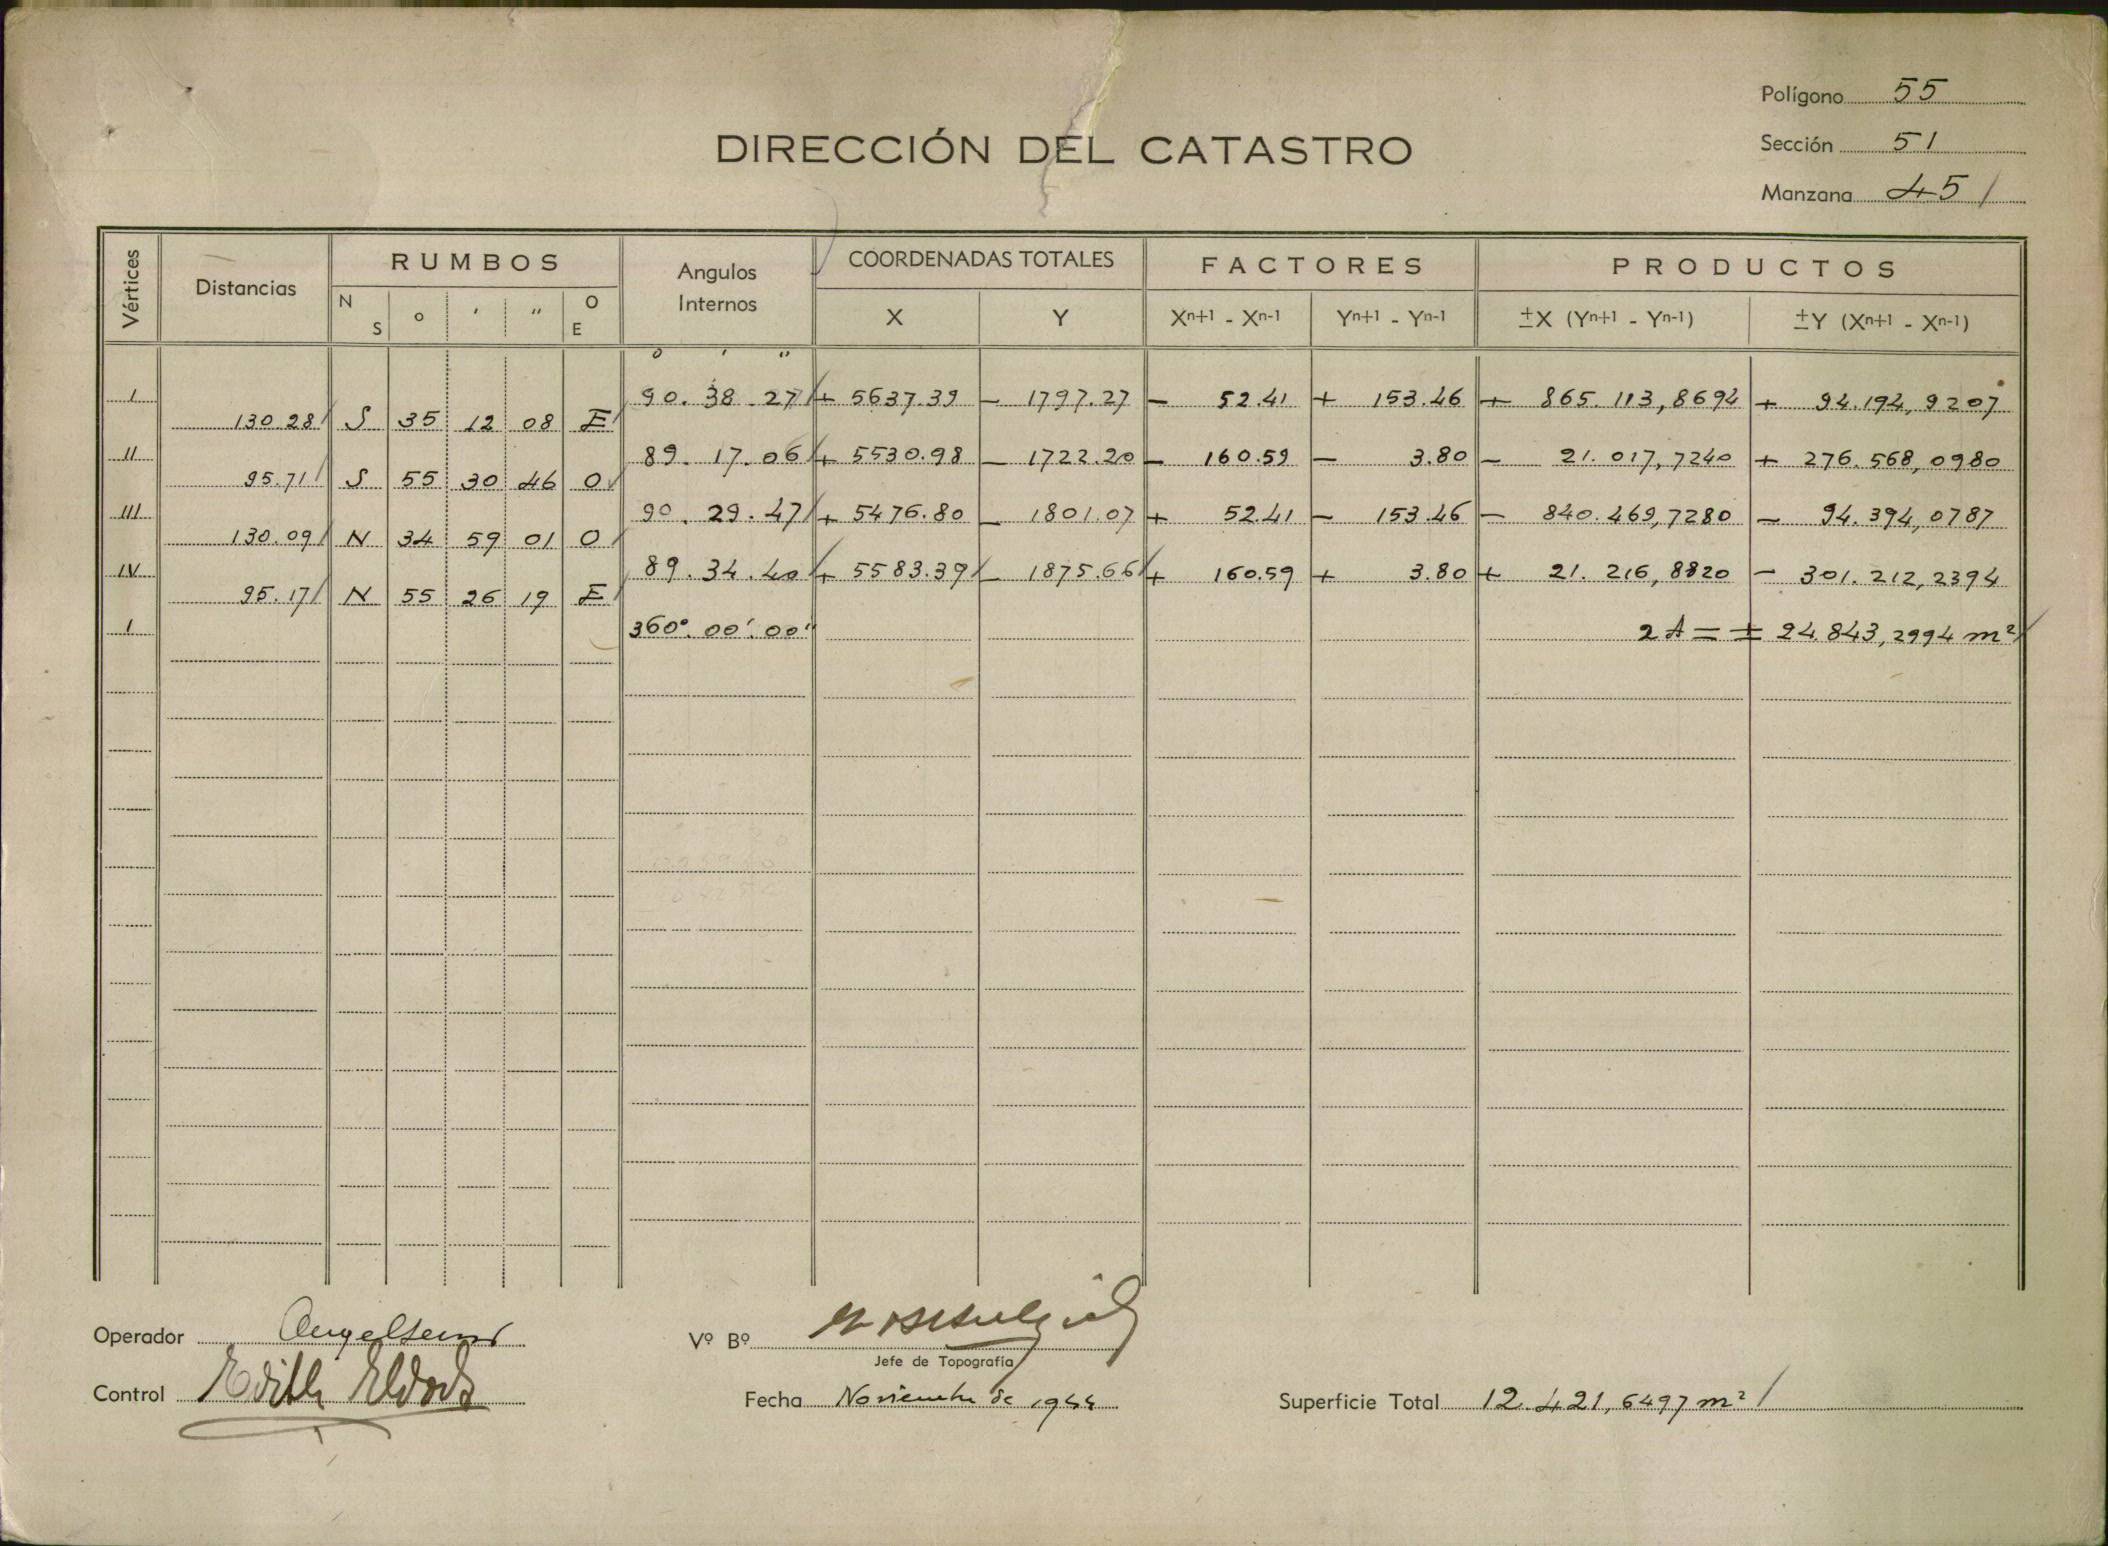 Polígono 55
DIRECCIÓN DEL CATASTRO
Sección 51
Manzana 45
Vértices Distancias RUMBOS Angulos Internos COORDENADAS TOTALES FACTORES PRODUCTOS
N S ° ' " O E X Y Xn+1 - Xn-1 Yn+1 - Yn-1 ±X (Yn+1 - Yn-1) ±Y (Xn+1 - Xn-1)
° ' "
I 90. 38. 27 + 5637.39 - 1797.27 - 52.41 + 153.46 + 865.113,8694 + 94.194,9207
130.28 S 35 12 08 E
II 89. 17. 06 + 5530.98 - 1722.20 - 160.59 - 3.80 - 21.017,7240 + 276.568,0980
95.71 S 55 30 46 O
III 90. 29. 47 + 5476.80 - 1801.07 + 52.41 - 153.46 - 840.469,7280 - 94.394,0787
130.09 N 34 59 01 O
IV 89. 34. 40 + 5583.39 - 1875.66 + 160.59 + 3.80 + 21.216,8820 - 301.212,2394
95.17 N 55 26 19 E
I 360°. 00'. 00" 2A = ± 24.843,2994 m²
Operador
Vº Bº
Jefe de Topografía
Control Edith
Fecha Noviembre de 1944
Superficie Total 12.421,6497 m²